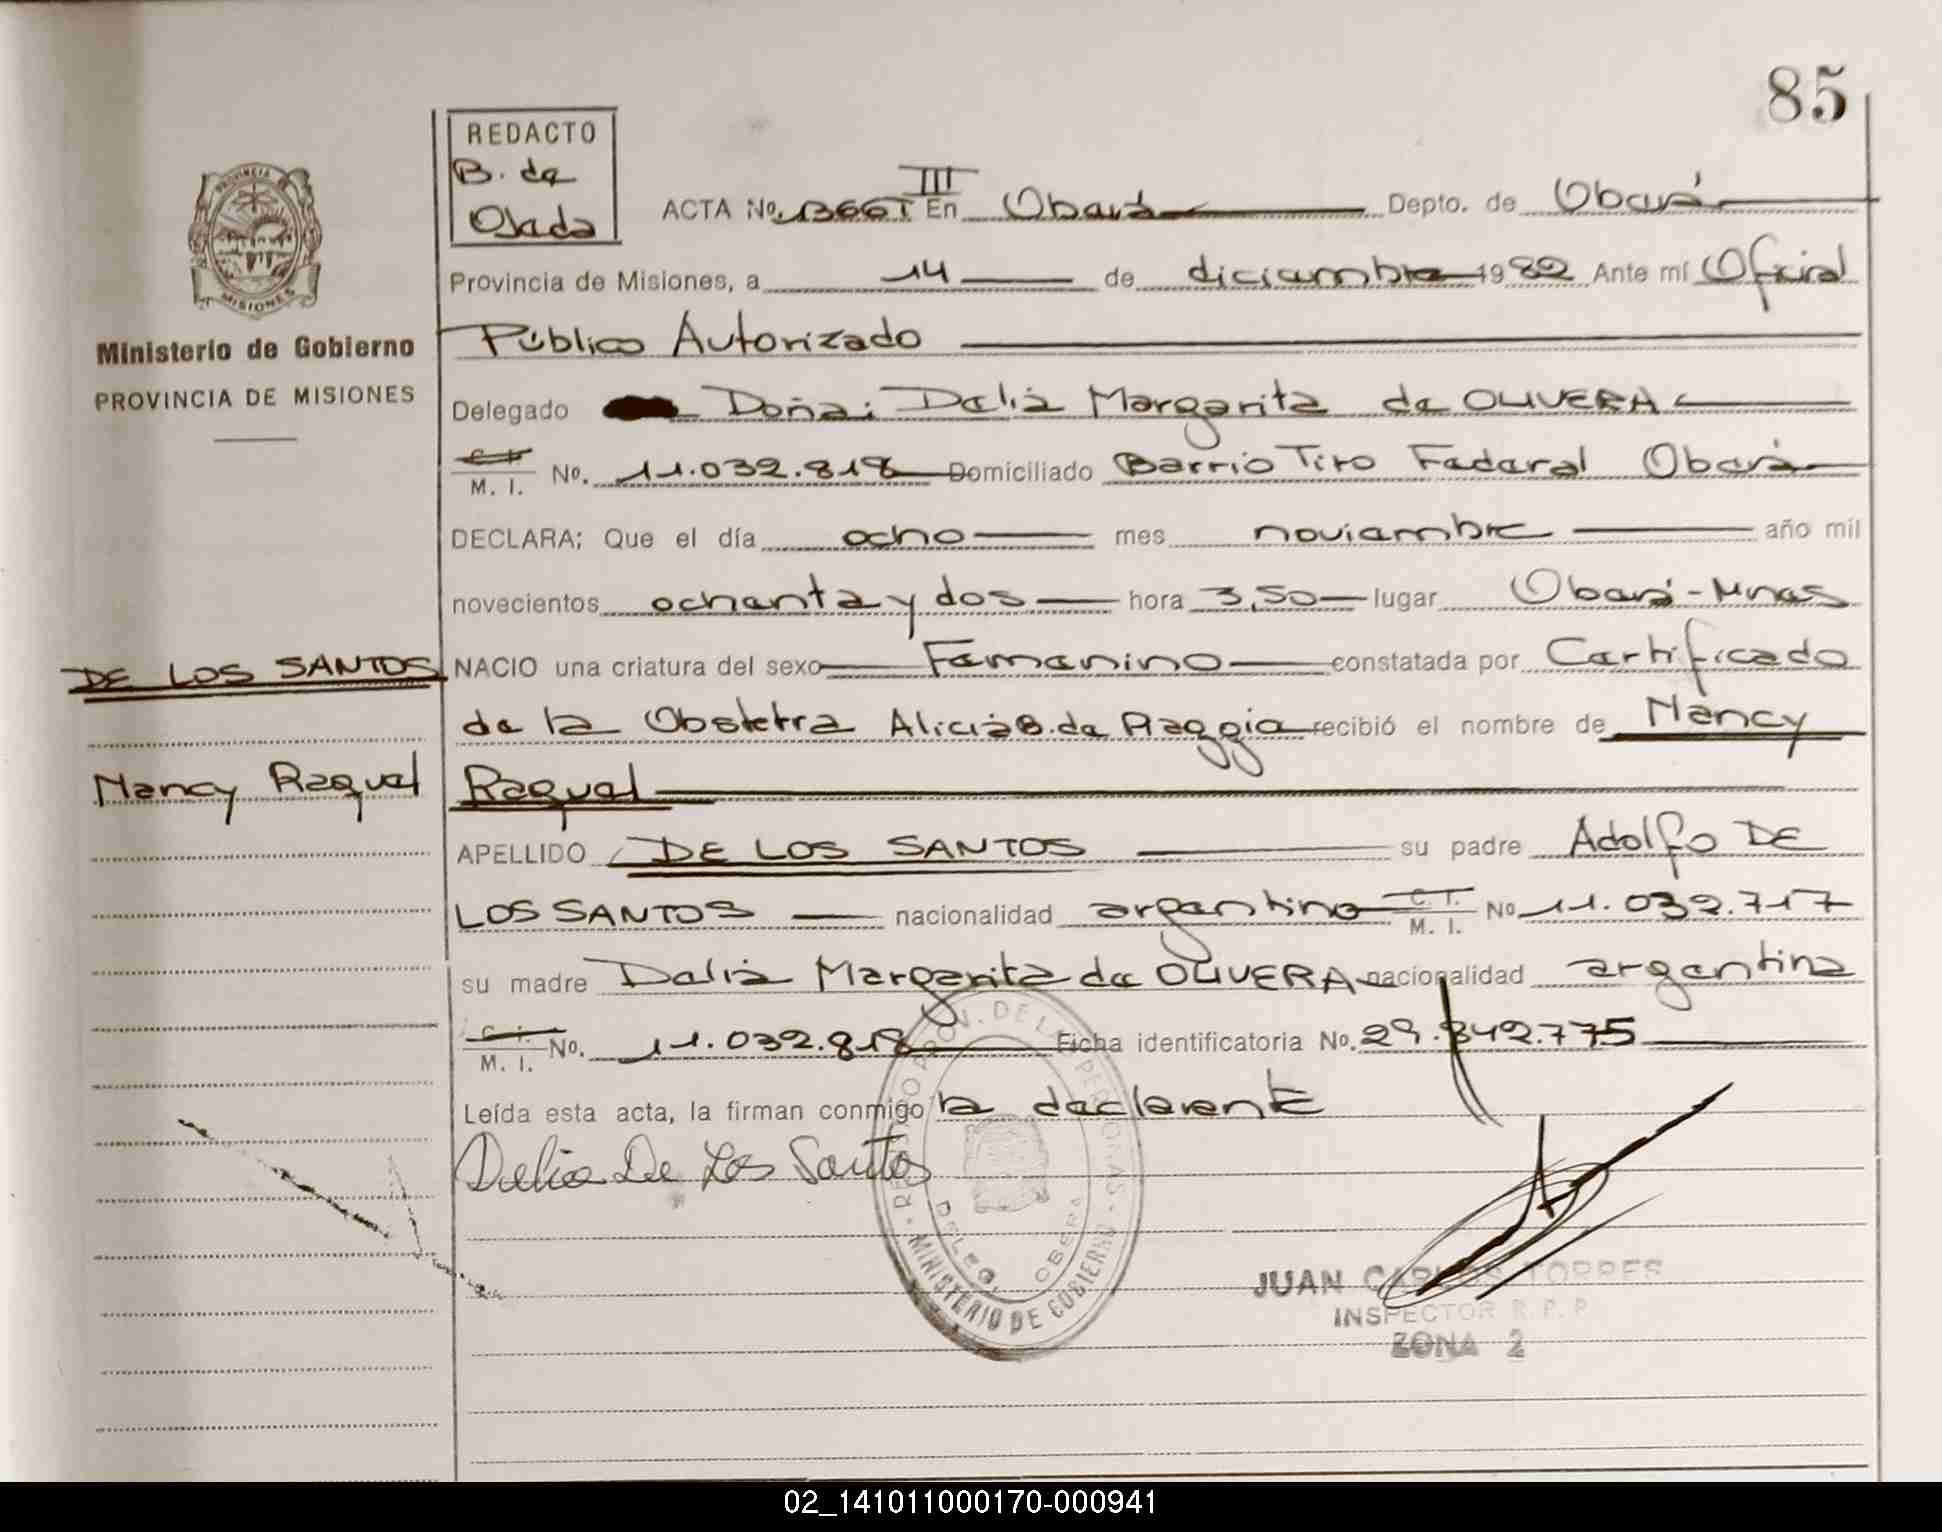 85
REDACTO
B. de
Ojeda
ACTA No. 1366 T III En Oberá Depto. de Oberá
PROVINCIA DE
MISIONES
Provincia de Misiones, a 14 de diciembre 1982 Ante mí Oficial
Ministerio de Gobierno
PROVINCIA DE MISIONES
Público Autorizado
Delegado Doña: Delia Margarita de OLIVERA
C. I. M. I. No. 11.032.818 Domiciliado Barrio Tiro Federal Oberá
DECLARA; Que el día ocho mes noviembre año mil
novecientos ochenta y dos hora 3,50 lugar Oberá-Mnes
DE LOS SANTOS
NACIO una criatura del sexo Femenino constatada por Certificado
de la Obstetra Alicia B. de Raggio recibió el nombre de Nancy
Nancy Raquel
Raquel
APELLIDO DE LOS SANTOS su padre Adolfo DE
LOS SANTOS nacionalidad argentino C. I. M. I. No 11.032.717
su madre Delia Margarita de OLIVERA nacionalidad argentina
C. I. M. I. No. 11.032.818 Ficha identificatoria No. 29.842.775
Leída esta acta, la firman conmigo la declarante
Delia De Los Santos
REGISTRO PROV. DE LAS PERSONAS
MINISTERIO DE GOBIERNO
DELEG. OBERA
JUAN CARLOS TORRES
INSPECTOR R. P. P.
ZONA 2
02_141011000170-000941